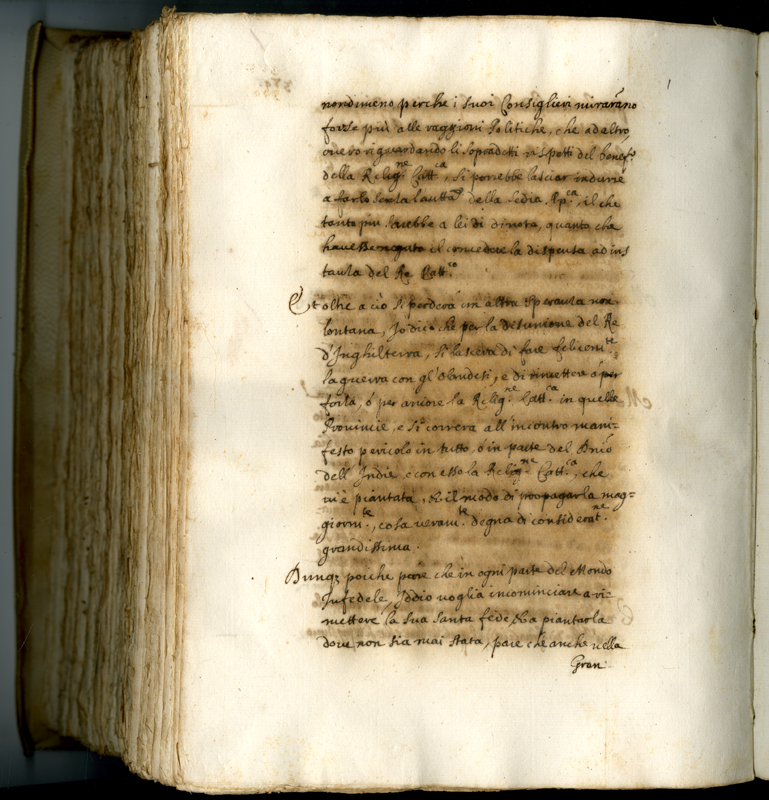 nondimeno perche i suoi Consiglieri mirarano
forse più alle raggioni Politiche, che ad altro
overo riguardando li sopradetti rispetti del benef.o
della Relig.ne Catt.ca, si potrebbe lasciar indurre
a farlo senza l'autta della Sedia Ap.ca, il che
tanto piu sarebbe a lei di di nota, quanto che
havesse negato il concedere la dispensa ad ins
tanza del Re Catt.co
Et oltre a ciò si perderà un altra speranza non
lontana, Io dico che per la desunione del Re
d'Inghilterra, si lasciera di fare felicem.te
la guerra con gl'Olandesi, e di rimettere ò per
forza, ò per amore la Relig.ne Catt.ca in quelle
Provincie, e si correrà all'incontro mani-
festo pericolo in tutto, ò in parte del Dnio
dell'Indie, e con esso la Relig.ne Catt.ca, che
vi è piantata, & il modo di propagarla mag=
giorm.te, cosa veram.te degna di considerat.ne
grandissima.
Dunq; poiche pare che in ogni parte del Mondo
Infedele, Iddio voglia incominciare a ri-
mettere la sua santa fede, & a piantarla
dove non sia mai stata, pare che anche nella
Gran: